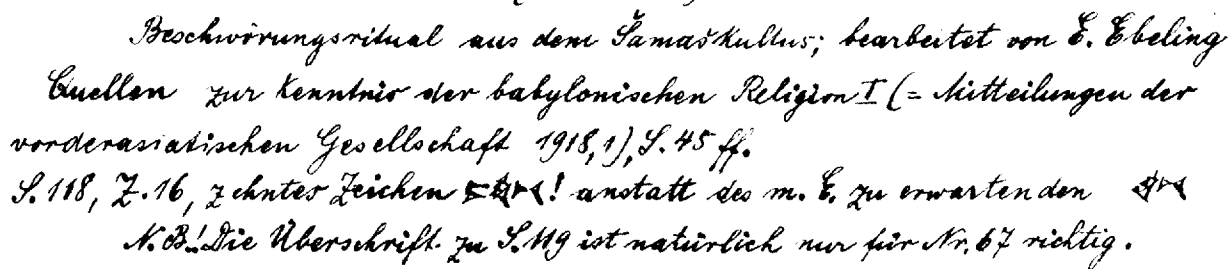 Beschwörungsritual aus dem Šamaškultus; bearbeitet von E. Ebeling
Quellen zur Kenntnis der babylonischen Religion I (= Mitteilungen der
vorderasiatischen Gesellschaft 1918,1), S. 45 ff.
S. 118, Z. 16, zehntes Zeichen ! anstatt des m. E. zu erwartenden
N. B! Die Überschrift zu S. 119 ist natürlich nur für Nr. 67 richtig.